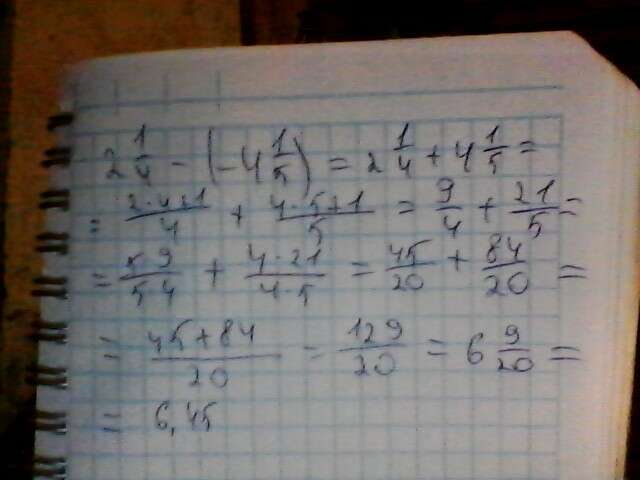 2 1/4 - (-4 1/5) = 2 1/4 + 4 1/5 =
= 2·4+1/4 + 4·5+1/5 = 9/4 + 21/5 =
= 5·9/5·4 + 4·21/4·5 = 45/20 + 84/20 =
= 45+84/20 = 129/20 = 6 9/20 =
= 6,45